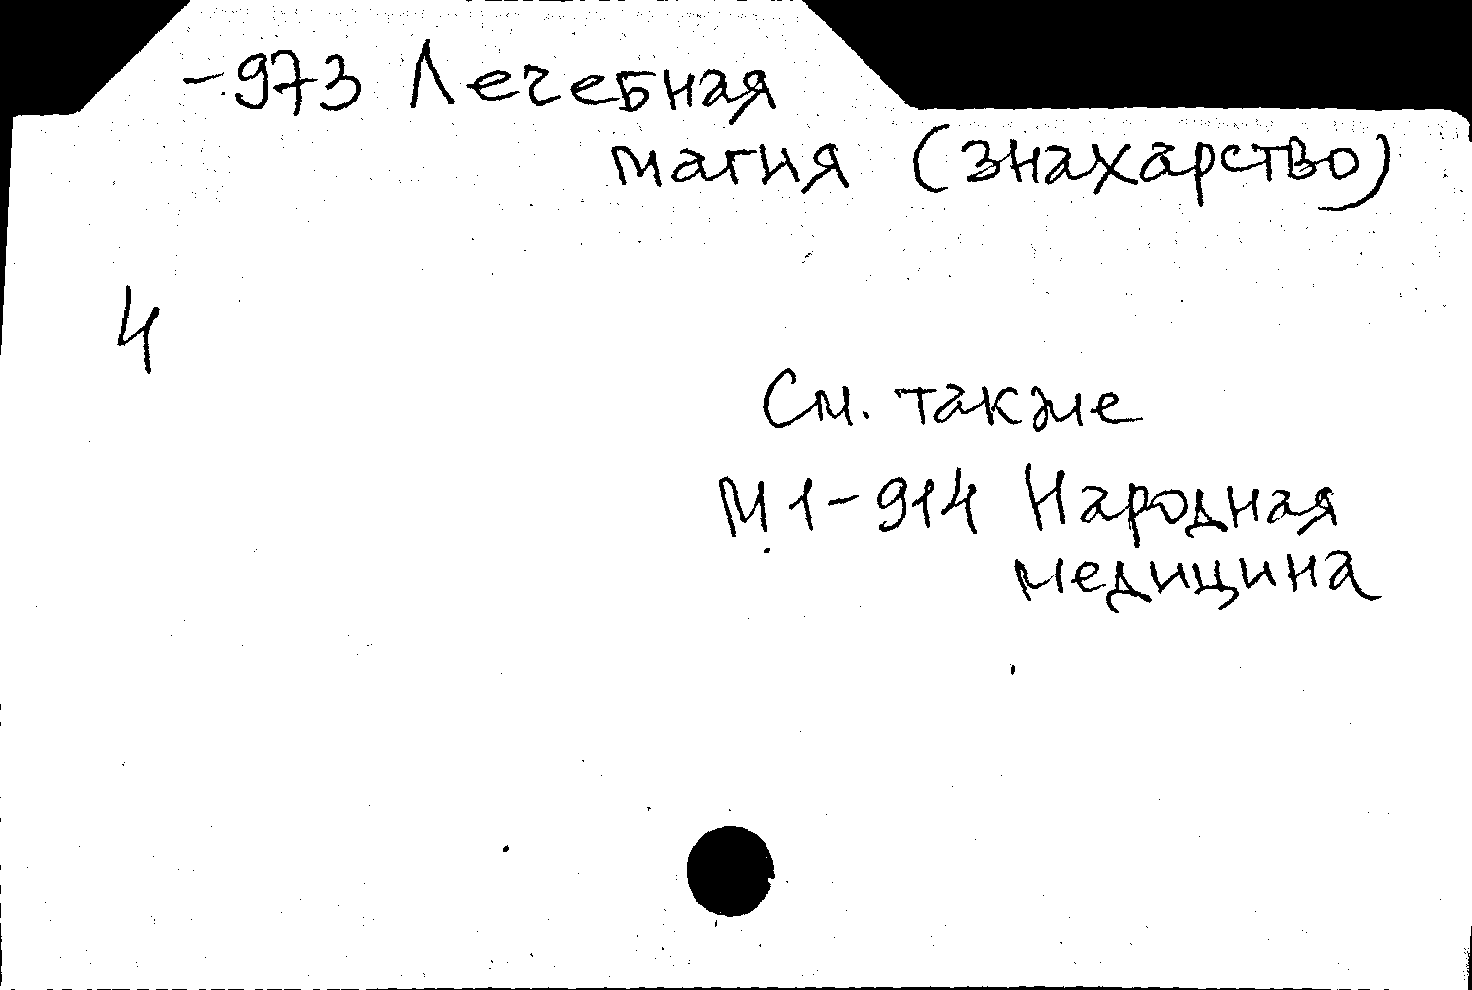 -973 Лечебная
магия (знахарство)
4
См. также
М1-914 Народная
медицина